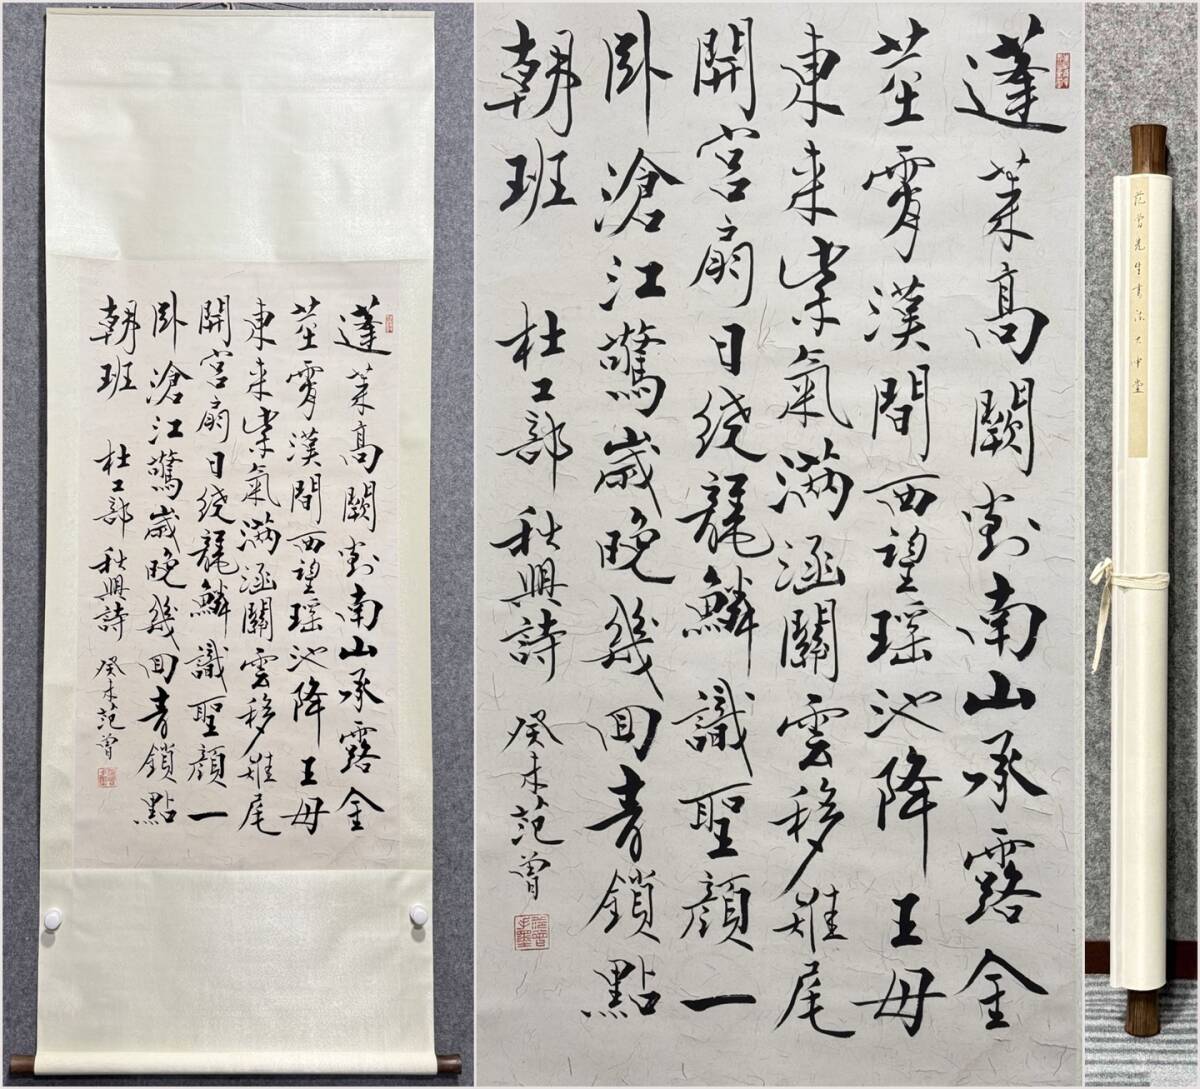 蓬莱高闕對南山承露金
莖霄漢間西望瑶池降王母
東来紫氣满涵關雲移雉尾
開宮扇日绕龍鱗識聖顔一
卧滄江驚歲晚幾回青鎖點
朝班 杜工部秋興詩 癸未范曾
蓬莱高闕對南山承露金
莖霄漢間西望瑶池降王母
東来紫氣满涵關雲移雉尾
開宮扇日绕龍鱗識聖顔一
卧滄江驚歲晚幾回青鎖點
朝班 杜工部秋興詩 癸未范曾
范曾先生書法